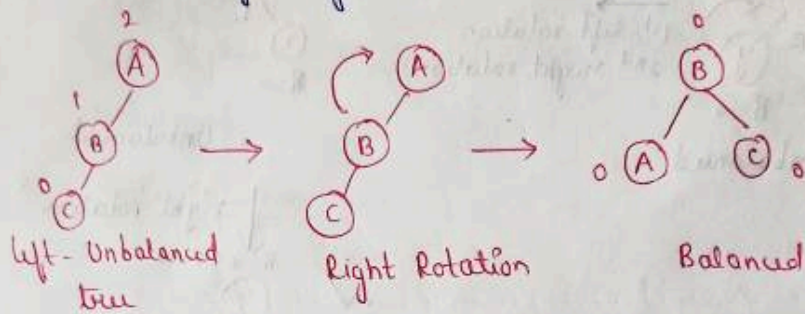 2
A
1
B
0
C
Left-Unbalanced
tree
A
B
C
Right Rotation
0
B
0 A
C 0
Balanced